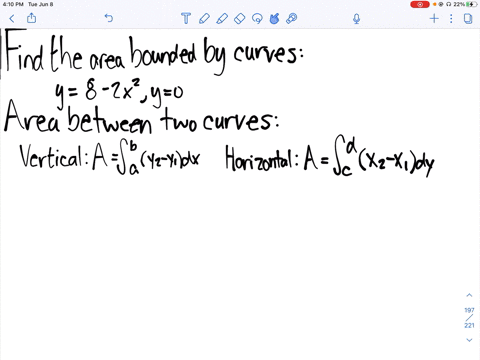 4:10 PM Tue Jun 8
22%
Find the area bounded by curves:
y = 8 - 2x², y=0
Area between two curves:
Vertical: A = ∫ₐᵇ (y₂-y₁)dx Horizontal: A = ∫꜀ᵈ (x₂-x₁)dy
197
/
221